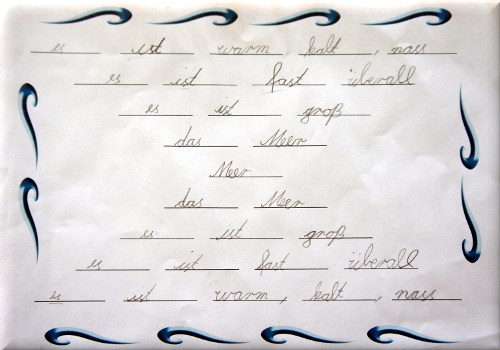 es ist warm, kalt, nass
es ist fast überall
es ist groß
das Meer
Meer
das Meer
es ist groß
es ist fast überall
es ist warm, kalt, nass